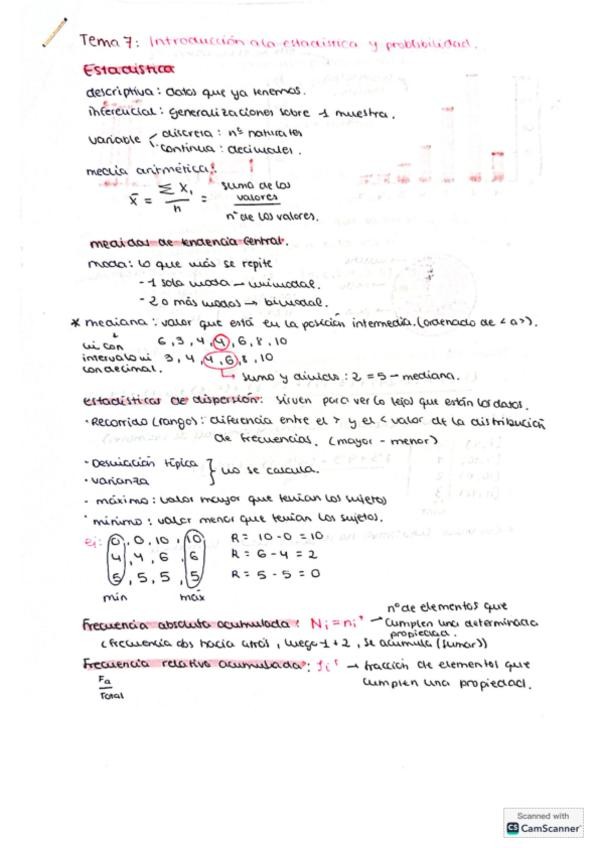 Tema 7: Introducción a la estadística y probabilidad.
Estadística
descriptiva: datos que ya tenemos.
inferencial: generalizaciones sobre 1 muestra.
variable discreta: nºs naturales
continua: decimales.
media aritmética:
x̄ = Σ Xi / n = suma de los valores / nº de los valores.
medidas de tendencia central.
moda: lo que más se repite
- 1 sola moda → unimodal.
- 2 o más modas → bimodal.
* mediana: valor que está en la posición intermedia. (ordenado de < a >).
ni con intervalo ni con decimal.
6, 3, 4, 4, 6, 8, 10
3, 4, 4, 6, 8, 10
→ sumo y divido: 2 = 5 → mediana.
estadísticas de dispersión: sirven para ver lo lejos que están los datos.
· Recorrido (rango): diferencia entre el > y el < valor de la distribución
de frecuencias. (mayor - menor)
· Desviación típica
· varianza
} no se calcula.
· máximo: valor mayor que tenían los sujetos
· mínimo: valor menor que tenían los sujetos.
ej: 0, 0, 10, 10 R = 10 - 0 = 10
4, 4, 6, 6 R = 6 - 4 = 2
5, 5, 5, 5 R = 5 - 5 = 0
min máx
Frecuencia absoluta acumulada: Ni = ni↑ → nº de elementos que
cumplen una determinada
propiedad.
(frecuencia abs hacia atrás, luego 1 + 2, se acumula (sumar))
Frecuencia relativa acumulada: fi↑ → fracción de elementos que
cumplen una propiedad.
Fa
Total
Scanned with
CS CamScanner